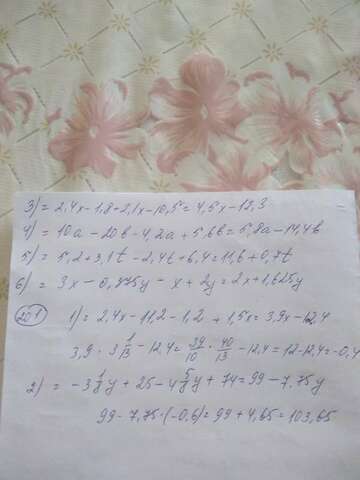 3) = 2,4x-1,8+2,1x-10,5=4,5x-12,3
4) = 10a-20b-4,2a+5,6b=5,8a-14,4b
5) = 5,2+3,1t-2,4t+6,4=11,6+0,7t
6) = 3x-0,375y-x+2y=2x+1,625y
1) = 2,4x-11,2-1,2+1,5x=3,9x-12,4
3,9 · 3 1/13 -12,4= 39/10 · 40/13 -12,4=12-12,4=-0,4
2) = -3 1/8 y+25-4 5/8 y+74=99-7,75y
99-7,75·(-0,6)=99+4,65=103,65